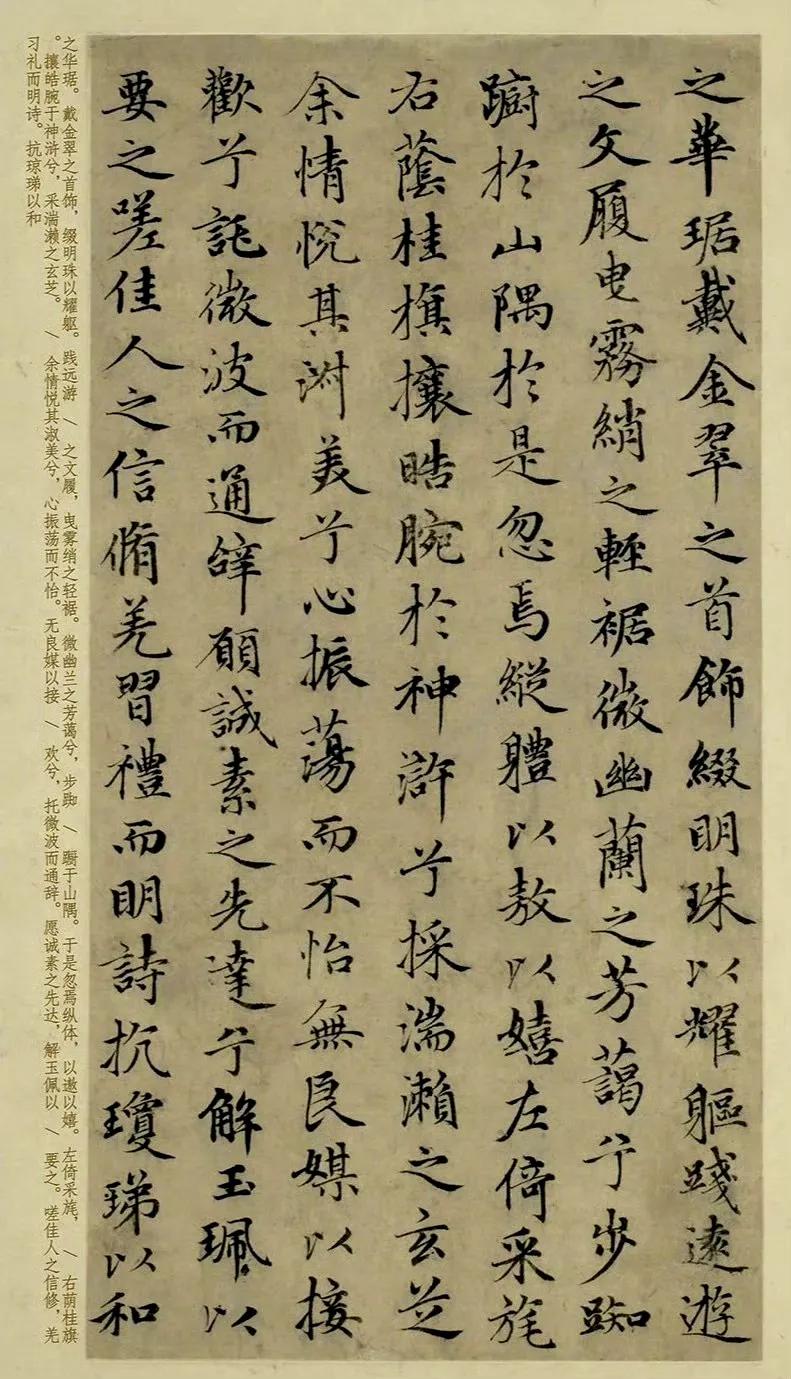 之華琚戴金翠之首飾綴明珠以耀軀踐遠遊
之文履曳霧綃之輕裾微幽蘭之芳藹兮步踟
躕於山隅於是忽焉縱體以敖以嬉左倚采旄
右蔭桂旗攘皓腕於神滸兮採湍瀨之玄芝
余情悅其淑美兮心振蕩而不怡無良媒以接
歡兮託微波而通辭願誠素之先達兮解玉珮以
要之嗟佳人之信脩羌習禮而明詩抗瓊珶以和
之华琚。戴金翠之首饰，缀明珠以耀躯。践远游 \ 之文履，曳雾绡之轻裾。微幽兰之芳蔼兮，步踟 \ 蹰于山隅。于是忽焉纵体，以遨以嬉。左倚采旄， \ 右荫桂旗
。攘皓腕于神浒兮，采湍濑之玄芝。 \ 余情悦其淑美兮，心振荡而不怡。无良媒以接 \ 欢兮，托微波而通辞。愿诚素之先达，解玉佩以 \ 要之。嗟佳人之信修，羌
习礼而明诗。抗琼珶以和